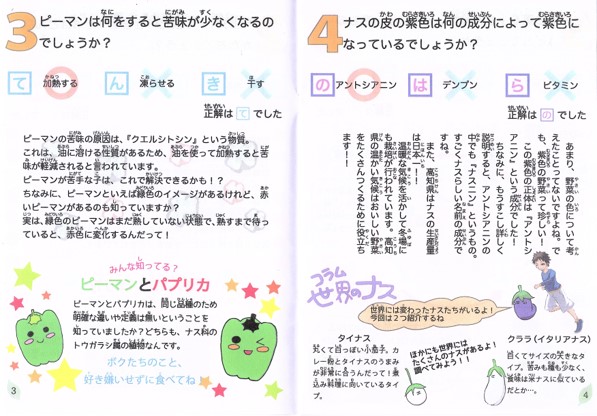 3 ピーマンは何をすると苦味が少なくなるの
でしょうか?
て 加熱する
ん 凍らせる
き 干す
正解は て でした
ピーマンの苦味の原因は、『クエルシトシン』という物質。
これは、油に溶ける性質があるため、油を使って加熱すると苦
味が軽減されると言われています。
ピーマンが苦手な子は、これで解決できるかも!?
ちなみに、ピーマンといえば緑色のイメージがあるけれど、赤
いピーマンがあるのも知っていますか?
実は、緑色のピーマンはまだ熟していない状態で、熟すまで待っ
ていると、赤色に変化するんだって!
みんな知ってる?
ピーマンとパプリカ
ピーマンとパプリカは、同じ品種のため
明確な違いや定義は無いということを
知っていましたか?どちらも、ナス科の
トウガラシ属の植物なんです。
ボクたちのこと、
好き嫌いせずに食べてね
3
4 ナスの皮の紫色は何の成分によって紫色に
なっているでしょうか?
の アントシアニン
は デンプン
ら ビタミン
正解は の でした
あまり、野菜の色について考
えたことってないですよね。で
も、紫色の野菜って珍しい!
この紫色の正体は『アントシ
アニン』という成分です。
ちなみに、もうすこし詳しく
説明すると、アントシアニンの
中でも『ナスニン』というもの。
すごくナスらしい名前の成分で
すね。
また、高知県はナスの生産量
は日本一!!
温暖な気候を活かして冬場に
も栽培が行われています。高知
県の温かい気候はおいしい野菜
をたくさんつくるために役立ち
ます!!
コラム
世界のナス
世界には変わったナスたちがいるよ!
今回は2つ紹介するね
タイナス
丸くて白っぽい小茄子。カ
レー粉とタイナスのうまみ
が非常に合うんだって!煮
込み料理に向いているタイ
プ。
ほかにも世界には
たくさんのナスがあるよ!
調べてみよう!!
クララ(イタリアナス)
白くてサイズの大きなタ
イプ。苦みも種も少なく、
食味は米ナスに似ている
だとか…。
4